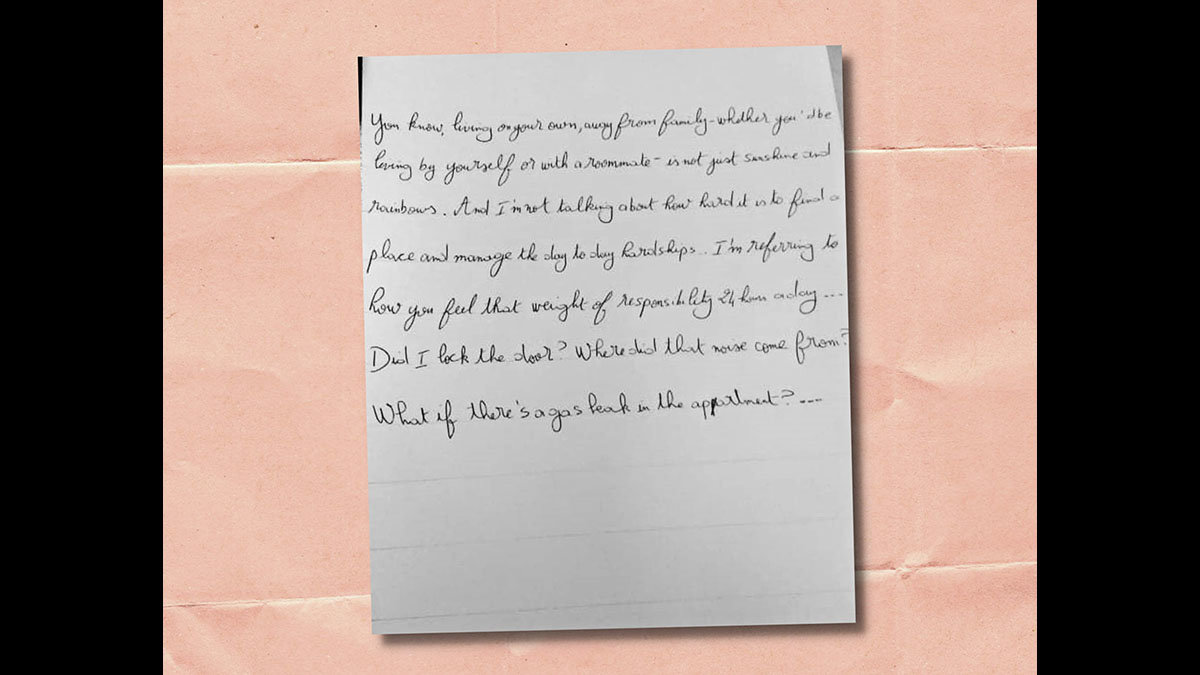 You know, living on your own, away from family - whether you'd be
living by yourself or with a roommate - is not just sunshine and
rainbows. And I'm not talking about how hard it is to find a
place and manage the day to day hardships.. I'm referring to
how you feel that weight of responsibility 24 hours a day ...
Did I lock the door? Where did that noise come from?
What if there's a gas leak in the appartment? ....